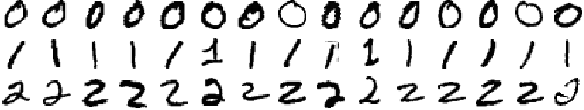 0 0 0 0 0 0 0 0 0 0 0 0 0 0 0
1 1 1 1 1 1 1 1 1 1 1 1 1 1 1
2 2 2 2 2 2 2 2 2 2 2 2 2 2 2